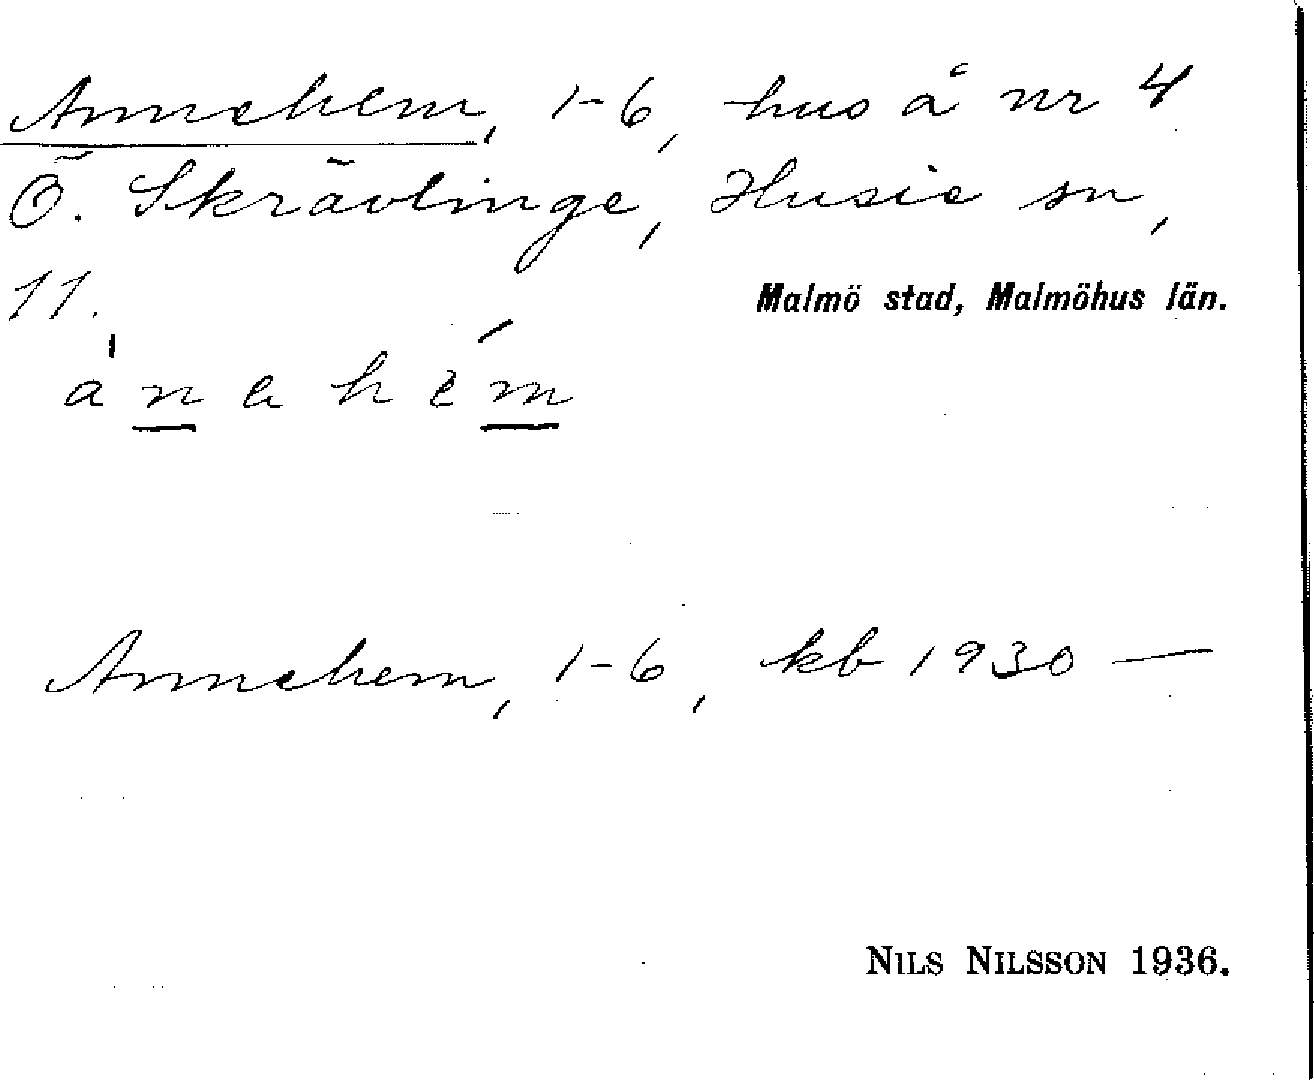 Annehem, 1-6, hus å nr 4
Ö. Skrävlinge, Husie sn,
11.
Malmö stad, Malmöhus län.
a'nehe´m
Annehem, 1-6, kb 1930 —
NILS NILSSON 1936.